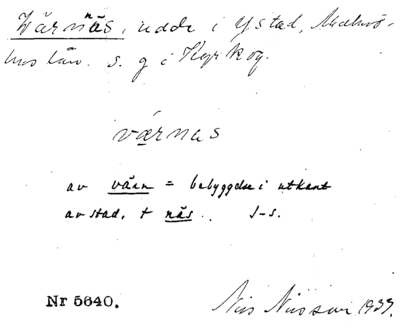 Värnäs, udde i Ystad, Malmö-
hus län. s. g i Kyrkog.
värnas
av värn = bebyggelse i utkant
av stad, + näs. J-s.
Nr 5640.
Nils Nilsson 1937.